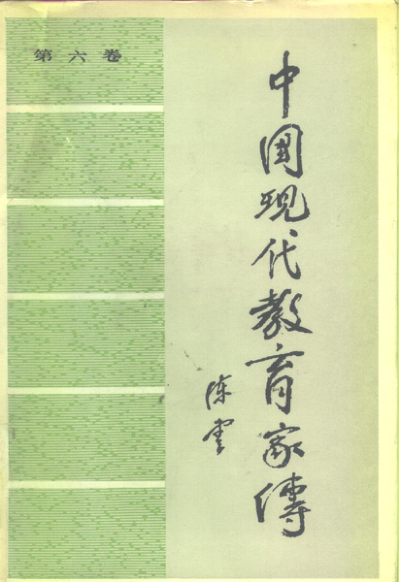 第六卷
中国现代教育家傳
陈云